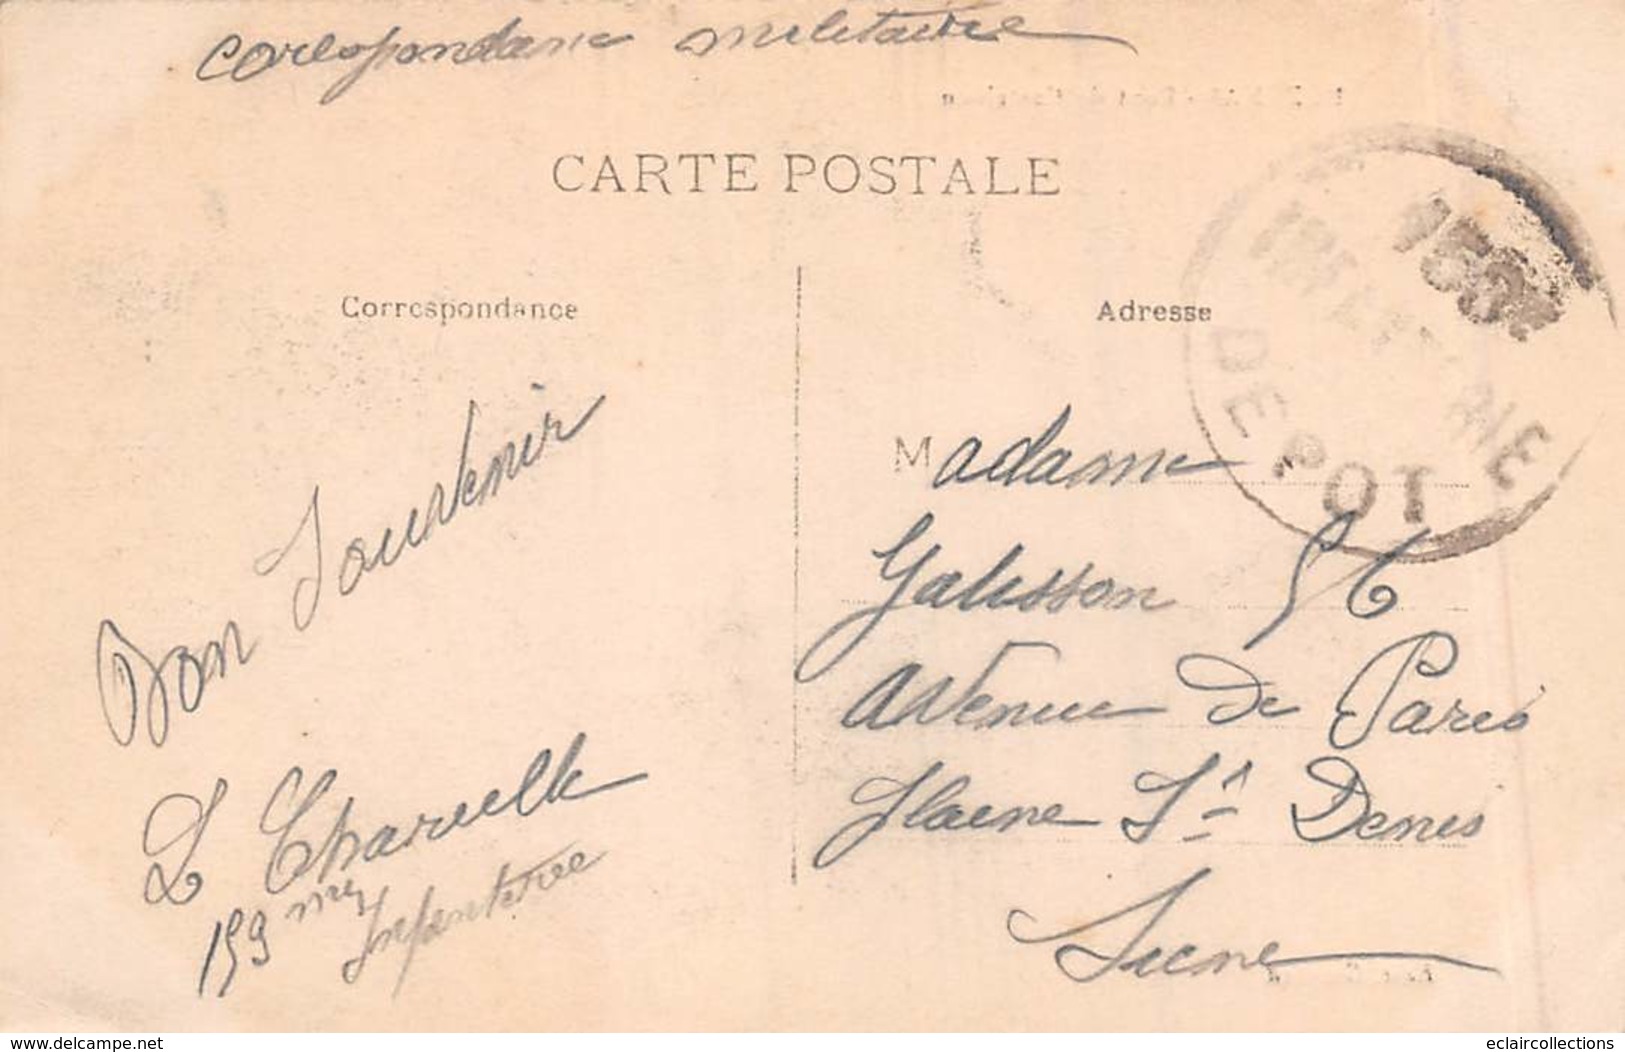 Corespondance militaire
CARTE POSTALE
Correspondance
Adresse
DEPOT
Bon Souvenir
L Charuelle
159 me
Infanterie
Madame
Galisson 56
Avenue de Paris
Plaine St Denis
Seine
delcampe.net
eclaircollections